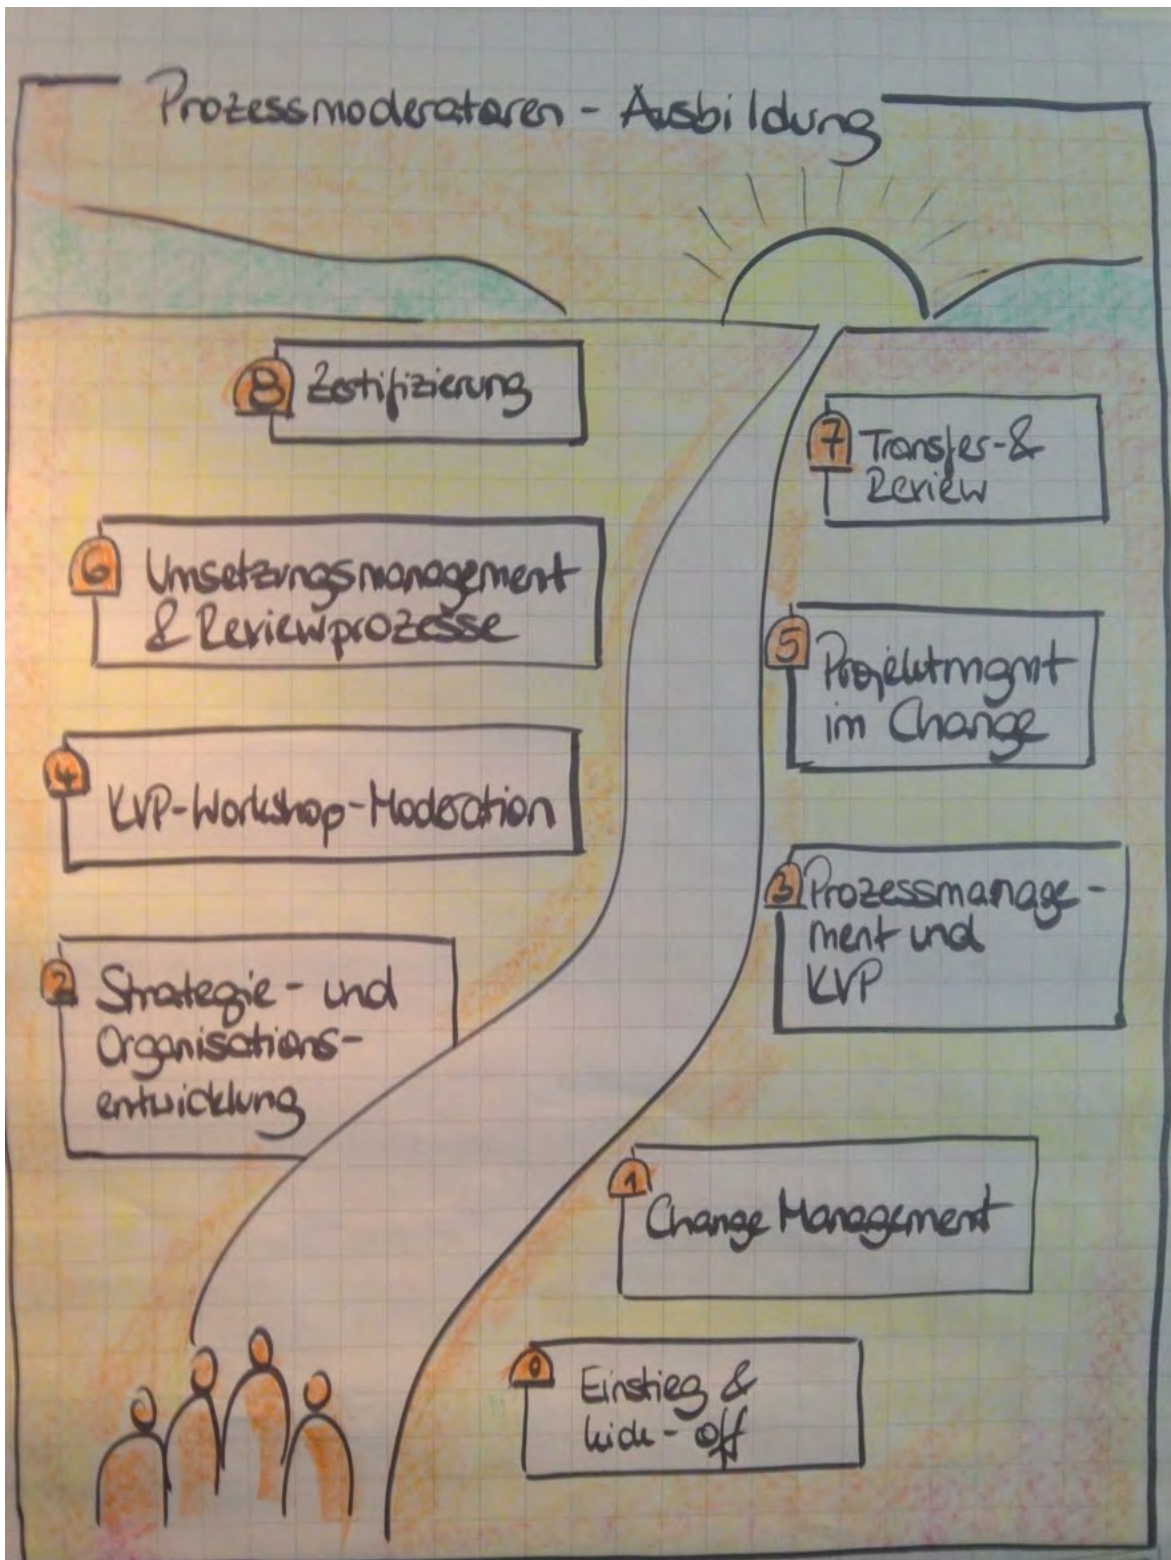 Prozessmoderatoren - Ausbildung
8 Zertifizierung
7 Transfer- &
Review
6 Umsetzungsmanagement
& Reviewprozesse
5 Projektmgmt
im Change
4 KVP-Workshop-Moderation
3 Prozessmanage-
ment und
KVP
2 Strategie- und
Organisations-
entwicklung
1 Change Management
0 Einstieg &
Kick-off